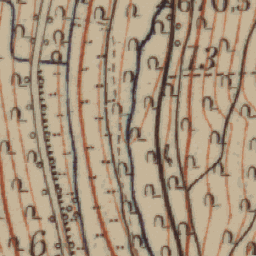 670,5
13
6